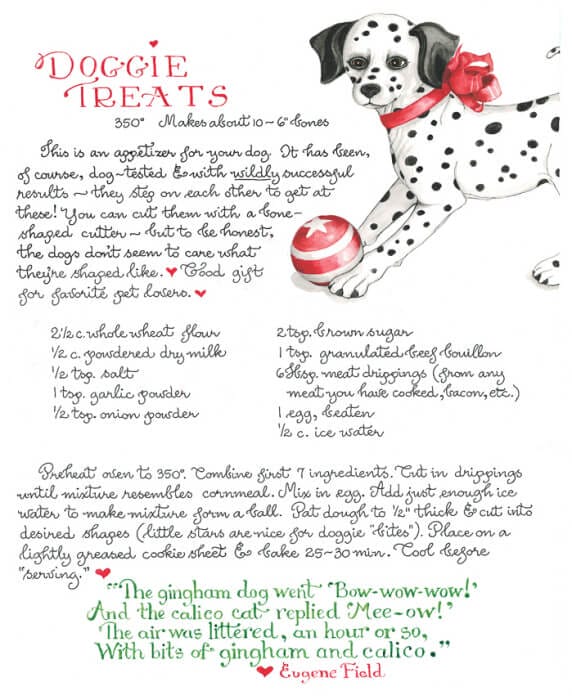 DOGGIE
TREATS
350° Makes about 10~6" bones
This is an appetizer for your dog. It has been,
of course, dog-tested & with wildly successful
results ~ they step on each other to get at
these! You can cut them with a bone-
shaped cutter ~ but to be honest,
the dogs don't seem to care what
they're shaped like. ♥ Good gift
for favorite pet lovers. ♥
2 1/2 c. whole wheat flour
1/2 c. powdered dry milk
1/2 tsp. salt
1 tsp. garlic powder
1/2 tsp. onion powder
2 tsp. brown sugar
1 tsp. granulated beef bouillon
6 Tbsp. meat drippings (from any
meat you have cooked, bacon, etc.)
1 egg, beaten
1/2 c. ice water
Preheat oven to 350°. Combine first 7 ingredients. Cut in drippings
until mixture resembles cornmeal. Mix in egg. Add just enough ice
water to make mixture form a ball. Pat dough to 1/2" thick & cut into
desired shapes (little stars are nice for doggie "bites"). Place on a
lightly greased cookie sheet & bake 25~30 min. Cool before
"serving." ♥
"The gingham dog went 'Bow-wow-wow!'
And the calico cat replied 'Mee-ow!'
The air was littered, an hour or so,
With bits of gingham and calico."
♥ Eugene Field